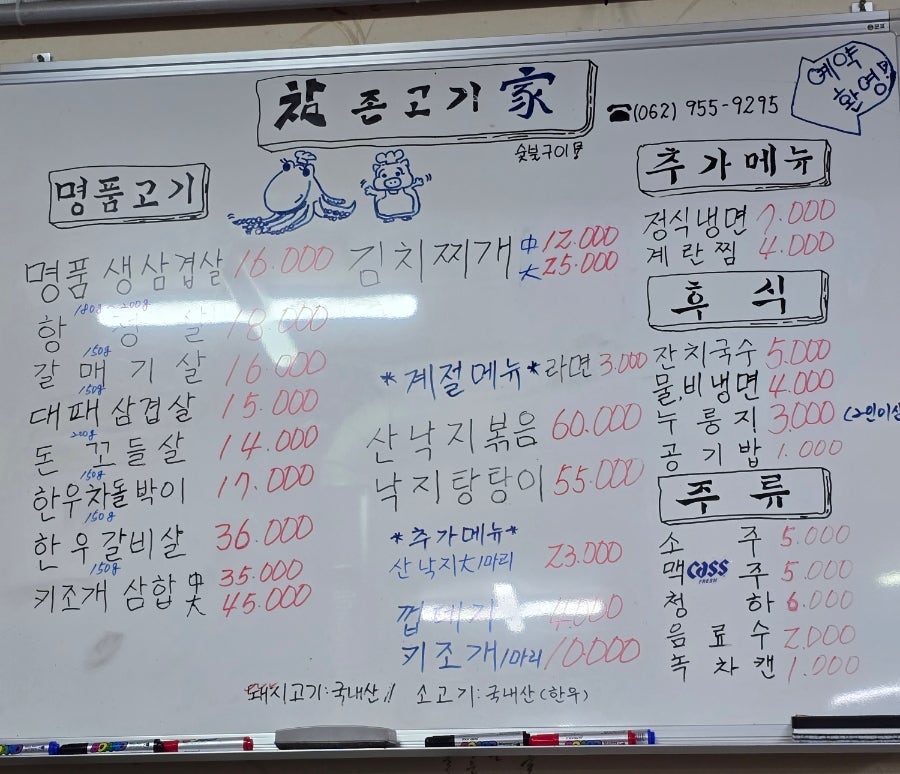 참 존 고 기 家
☎(062) 955-9295
예약 환영
숯불구이용
명품고기
명품 생삼겹살 16.000
180g~200g
항 정 살 18.000
150g
갈 매 기 살 16.000
150g
대패삼겹살 15.000
200g
돈 꼬들살 14.000
150g
한우차돌박이 17.000
150g
한우갈비살 36.000
150g
키조개 삼합 中 35.000
大 45.000
김치찌개 中 12.000
大 25.000
*계절메뉴* 라면 3.000
산낙지볶음 60.000
낙지탕탕이 55.000
*추가메뉴*
산낙지大1마리 23.000
껍데기 4.000
키조개1마리 10.000
추가메뉴
정식냉면 7.000
계란찜 4.000
후 식
잔치국수 5.000
물,비냉면 4.000
누룽지 3.000 (2인이상
공기밥 1.000
주 류
소 주 5.000
맥 cass FRESH 주 5.000
청 하 6.000
음료수 2.000
녹차캔 1.000
돼지고기:국내산// 소고기:국내산(한우)